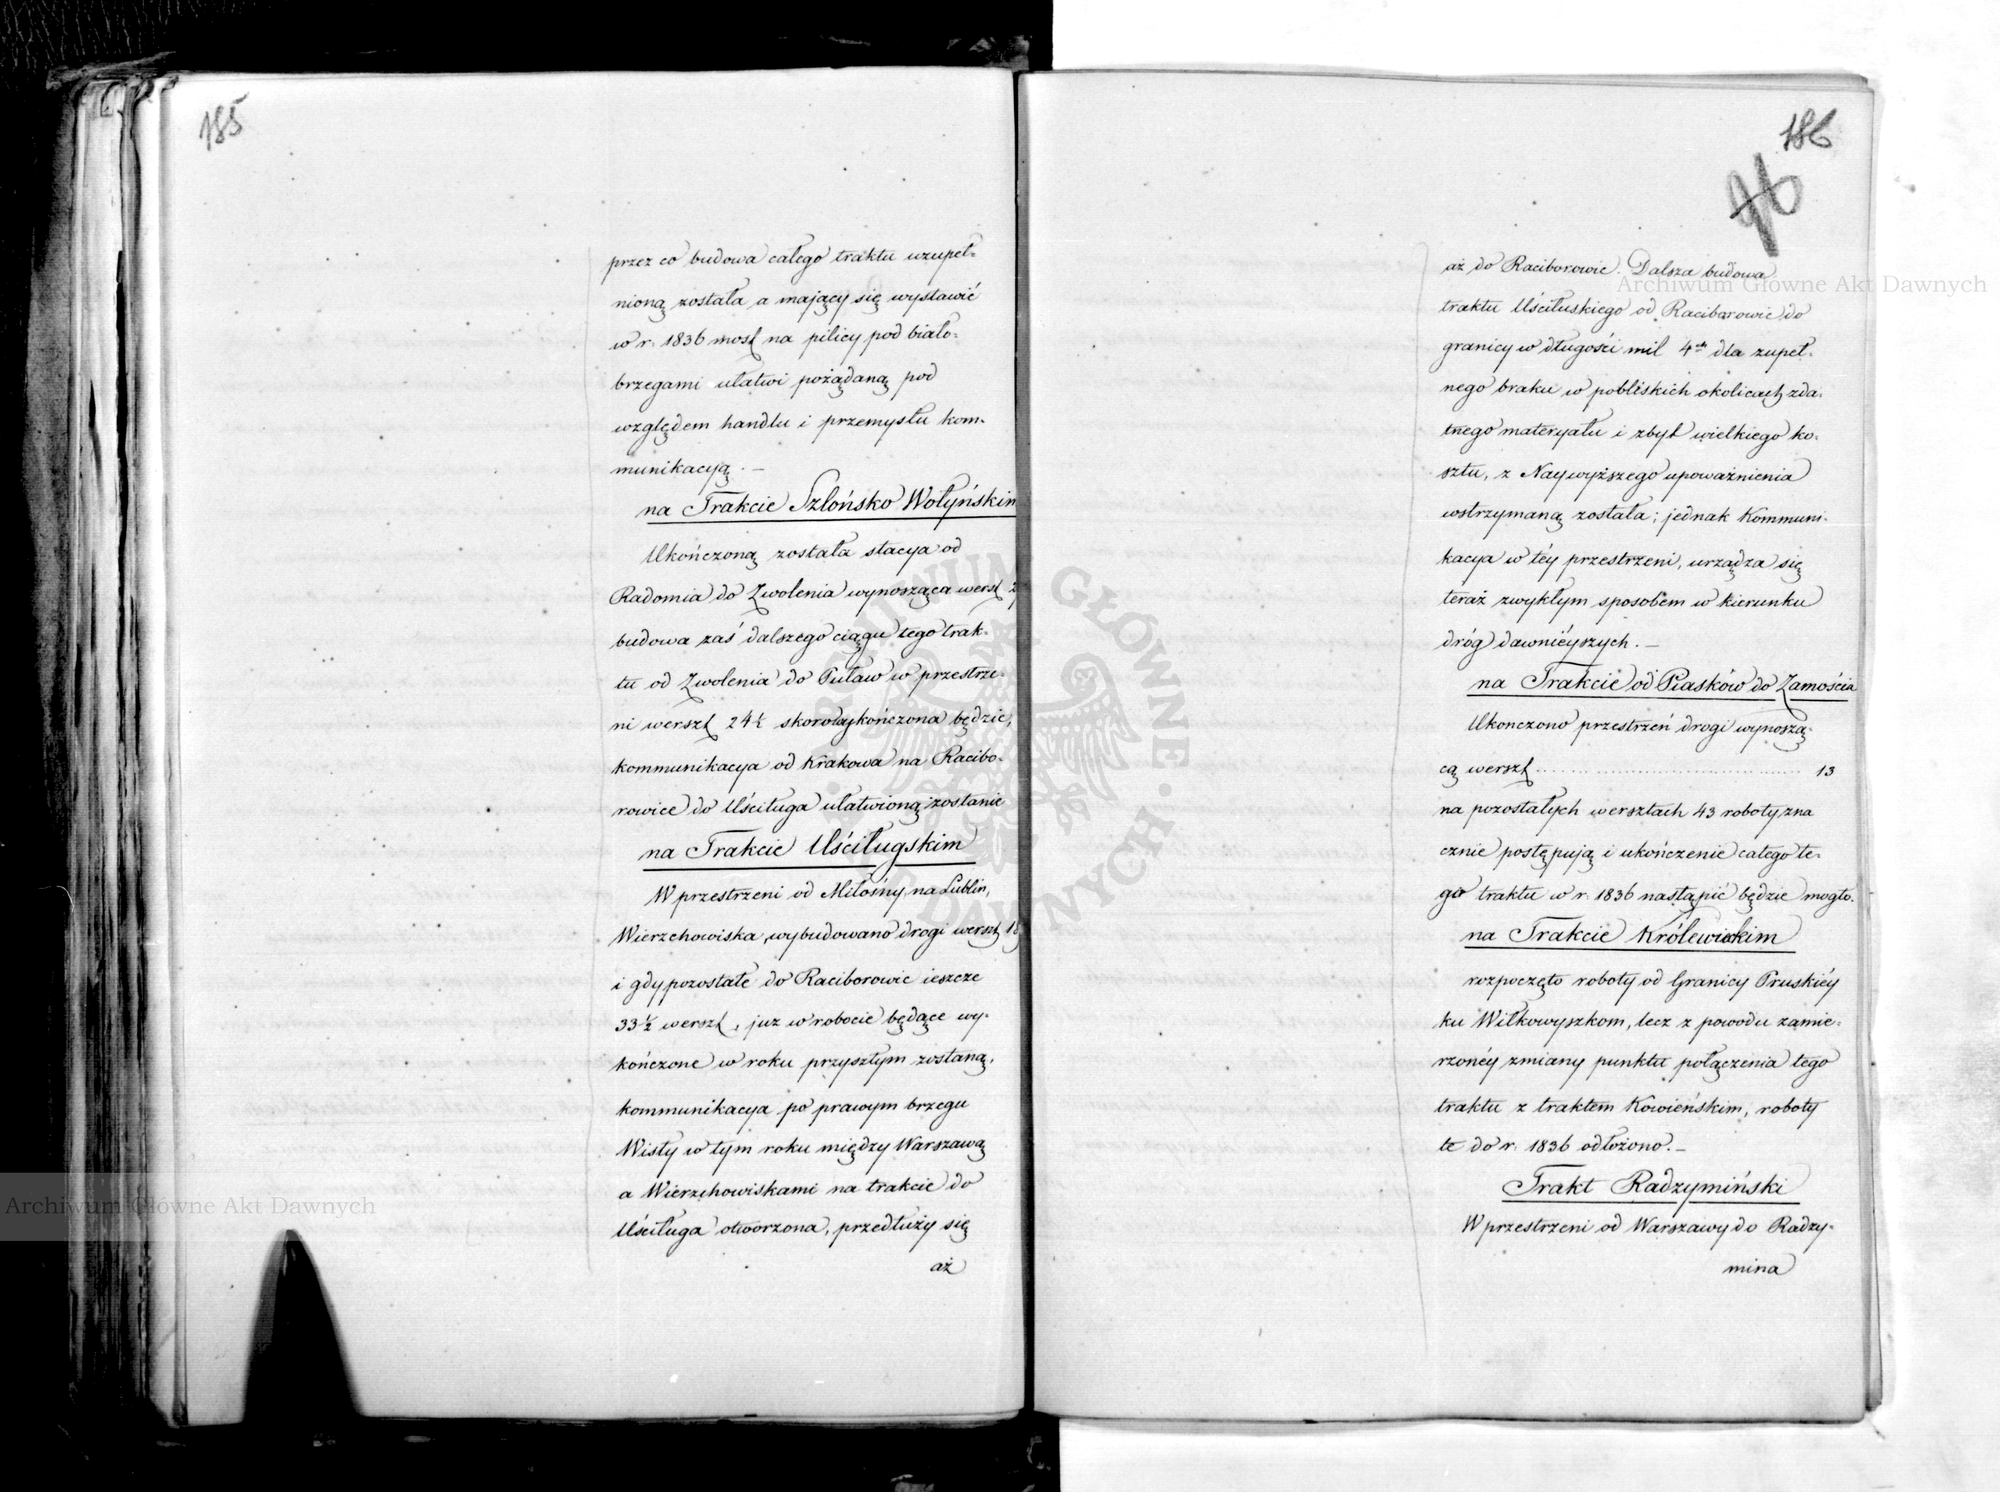 185
przez co budowa całego traktu uzupeł-
nioną została a mający się wystawić
w r. 1836 most na pilicy pod biało-
brzegami ułatwi pożądaną pod
względem handlu i przemysłu kom-
munikacyą. —
na Trakcie Szlońsko Wołyńskim
Ukończoną została stacya od
Radomia do Zwolenia wynosząca werst
budowa zaś dalszego ciągu tego trak-
tu od Zwolenia do Puław w przestrze-
ni werszt 24½ skoro wykończona będzie,
kommunikacya od Krakowa na Racibo-
rowice do Uściługa ułatwioną zostanie
na Trakcie Uściługskim
W przestrzeni od Miłosny na Lublin,
Wierzchowiska, wybudowano drogi werszt 18
i gdy pozostałe do Raciborowic ieszcze
33½ werszt, juz w robocie będące wy-
kończone w roku przyszłym zostaną,
kommunikacya po prawym brzegu
Wisły w tym roku między Warszawą
a Wierzchowiskami na trakcie do
Uściługa otworzona, przedłuży się
aż
186
96
aż do Raciborowic. Dalsza budowa
traktu Uściłuskiego od Raciborowic do
granicy w długości mil 4ch dla zupeł-
nego braku w pobliskich okolicach zda-
tnego materyału i zbyt wielkiego ko-
sztu, z Naywyższego upoważnienia
wstrzymaną została; jednak Kommuni-
kacya w téy przestrzeni, urządza się
teraz zwykłym sposobem w kierunku
dróg dawniéyszych. —
na Trakcie od Piasków do Zamościa
Ukonczono przestrzeń drogi wynoszą-
cą werszt ........ 13
na pozostałych wersztach 43 roboty zna
cznie postępują i ukończenie całego te-
go traktu w r. 1836 nastąpić będzie mogło.
na Trakcie Królewickim
rozpoczęto roboty od Granicy Pruskiéy
ku Wiłkowyszkom, lecz z powodu zamie-
rzonéy zmiany punktu połączenia tego
traktu z traktem Kowieńskim, roboty
te do r. 1836 odłożono. —
Trakt Radzymiński
W przestrzeni od Warszawy do Radzy-
mina
Archiwum Główne Akt Dawnych
Archiwum Główne Akt Dawnych
ARCHIWUM GŁÓWNE AKT DAWNYCH